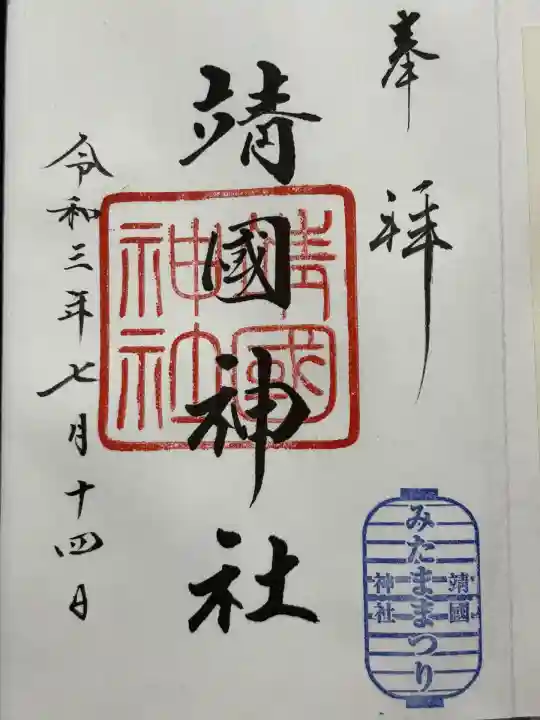 奉拝
靖國神社
靖國神社
令和三年七月十四日
靖國
みたままつり
神社